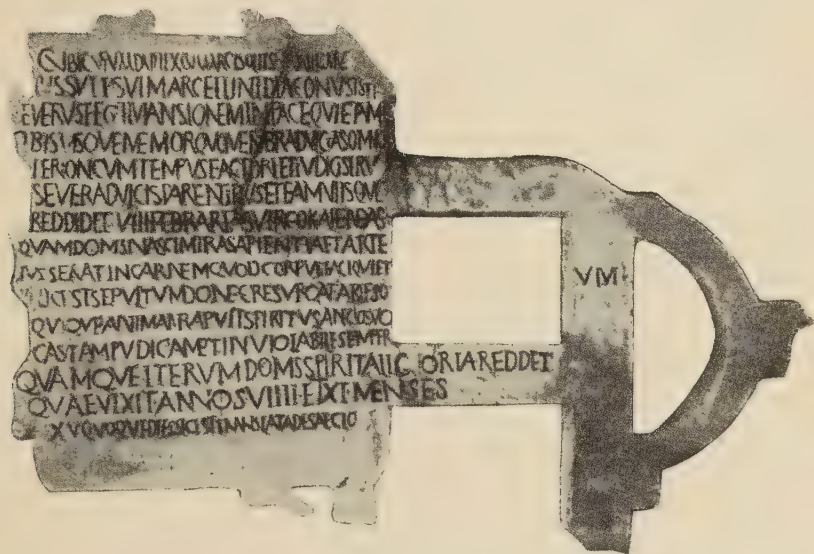 CUBICULUM DUPLEX CUM ARCISOLIIS ET LUMINARE
IUSSU PP SUI MARCELLINI DIACONUS ISTE
EVERUS FECIT MANSIONEM IN PACE QUIETAM
IBI SUISQUE MEMOR QUO MEMBRA DULCIA SOMNO
PER LONGUM TEMPUS FACTORI ET IUDICI SERV
SEVERA DULCIS PARENTIBUS ET FAMULISQUE
REDDIDIT VIII FEBRARIAS VIRGO KALENDAS
QUAM DOMS NASCI MIRA SAPIENTIA ET ARTE
IUSSERAT IN CARNEM QUOD CORPUS QUIET
HIC EST SEPULTUM DONEC RESURGAT AB IPSO
QUIQUE ANIMAM RAPUIT SPIRITU SANCTO SUO
CASTAM PUDICAM ET INVIOLABILE SEMPER
QUAMQUE ITERUM DOMS SPIRITALI GLORIA REDDET
QUAE VIXIT ANNOS VIIII ET XI MENSES
XV QUOQUE DIES SIC EST TRANSLATA DE SAECLO
VM